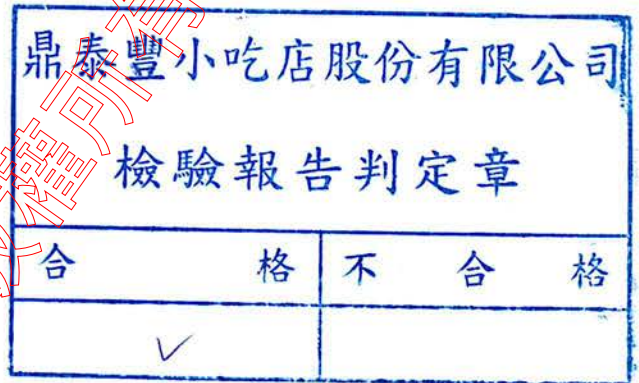 鼎泰豐小吃店股份有限公司
檢驗報告判定章
合格 不合格
✓